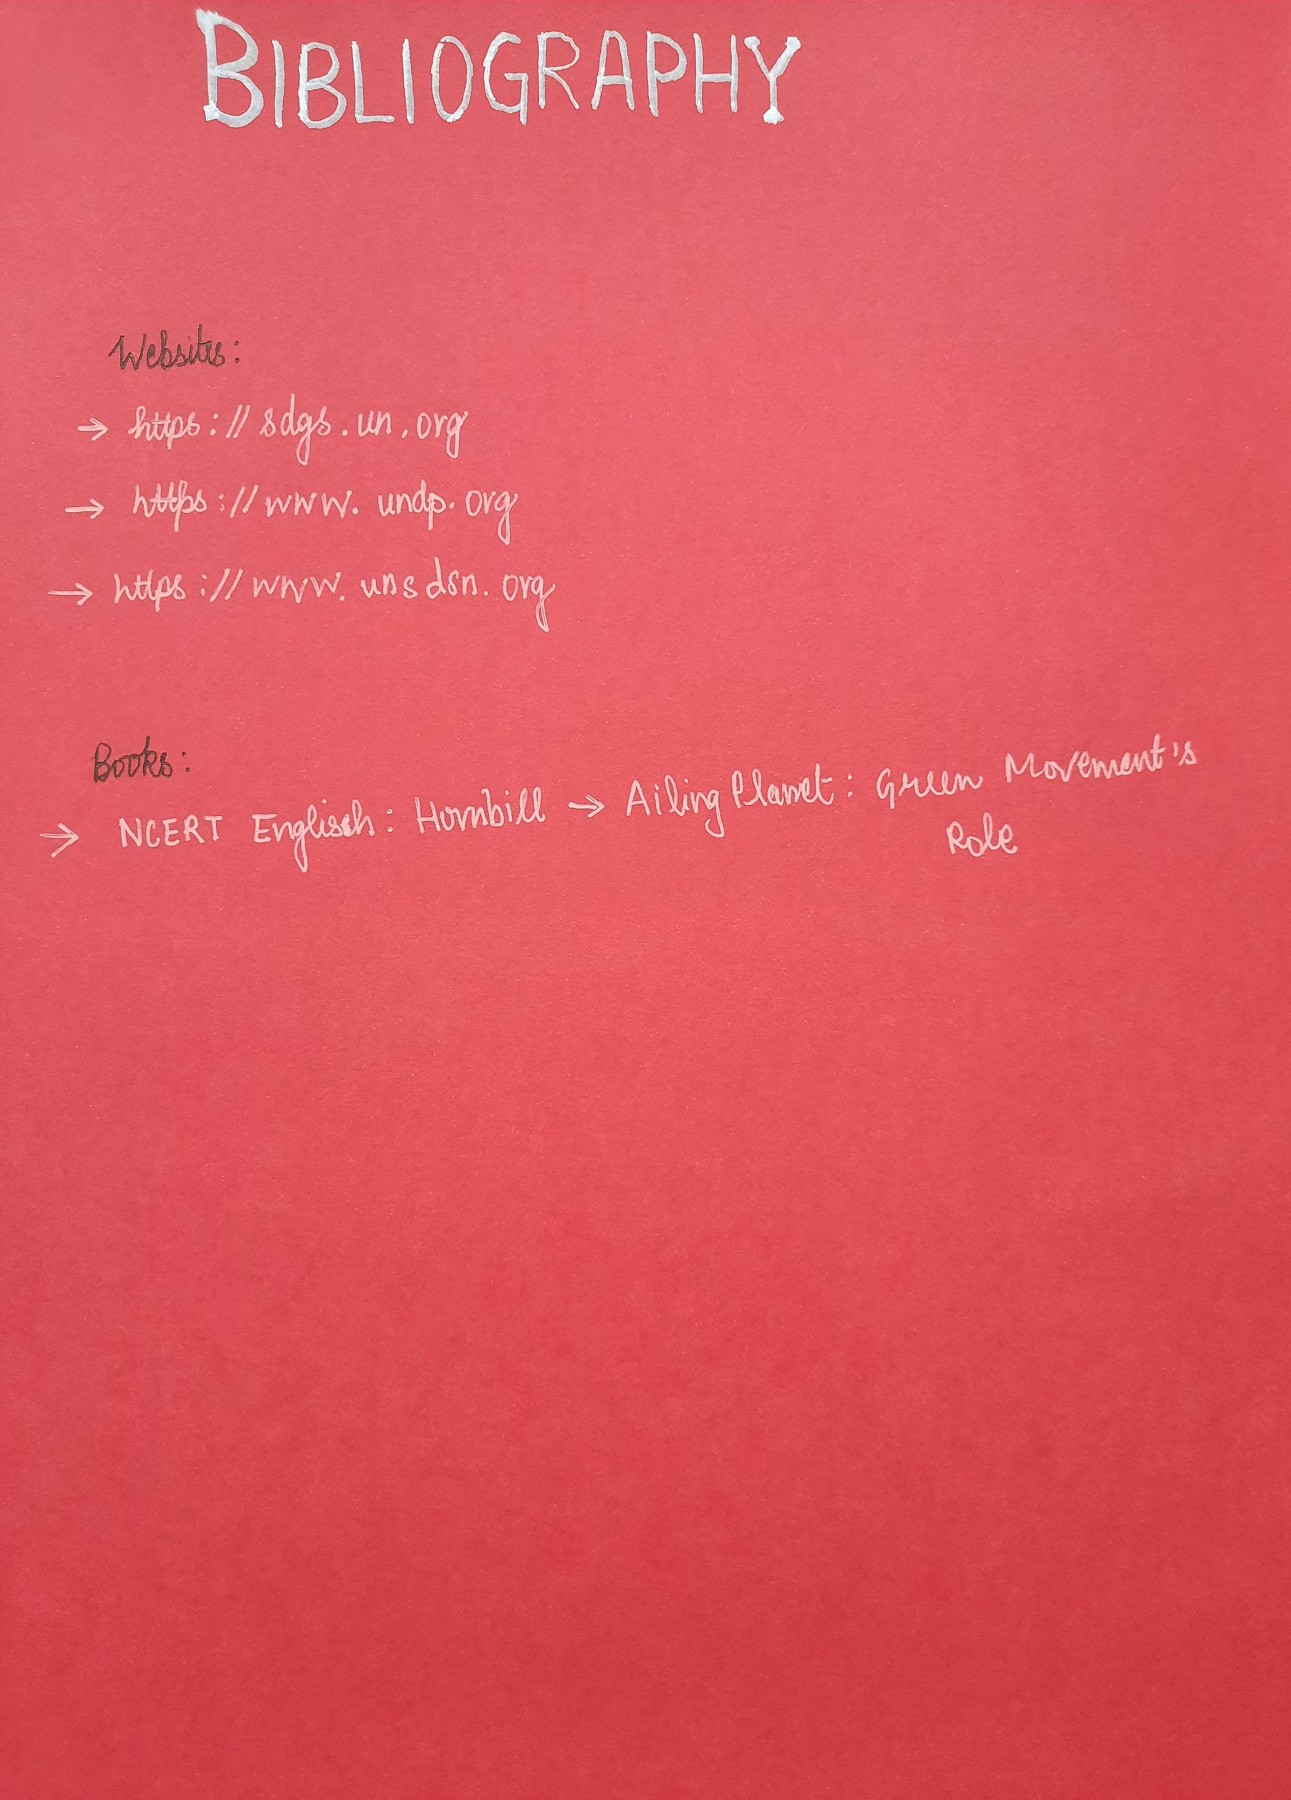 BIBLIOGRAPHY
Websites:
→ https://sdgs.un.org
→ https://www.undp.org
→ https://www.unsdsn.org
Books:
→ NCERT English: Hornbill → Ailing Planet: Green Movement's
Role